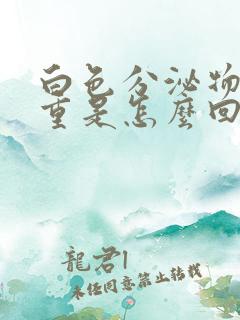 白色分泌物
重是怎麼回
龍君l
未經同意禁止轉載